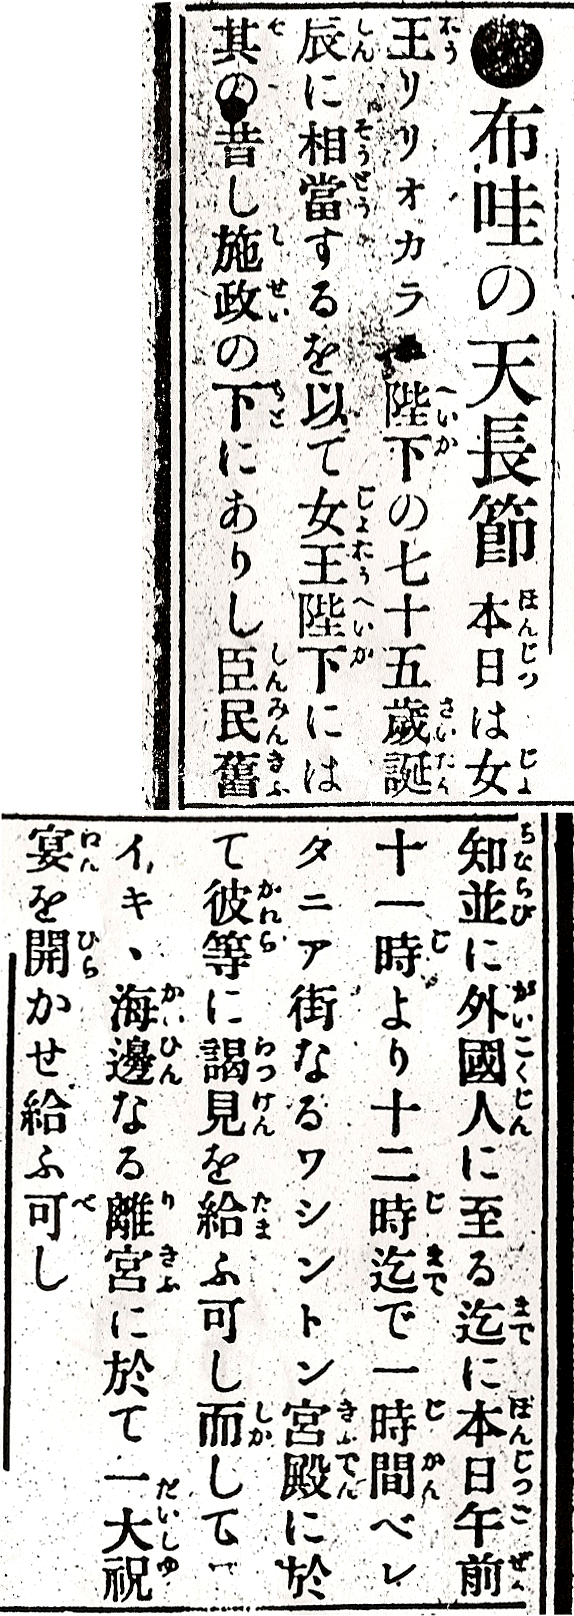 ●布哇の天長節 本日は女
王リリオカラ 陛下の七十五歲誕
辰に相當するを以て女王陛下には
其の昔し施政の下にありし臣民舊
知並に外國人に至る迄に本日午前
十一時より十二時迄で一時間ベレ
タニア街なるワシントン宮殿に於
て彼等に謁見を給ふ可し而してワ
イキヽ海邊なる離宮に於て一大祝
宴を開かせ給ふ可し